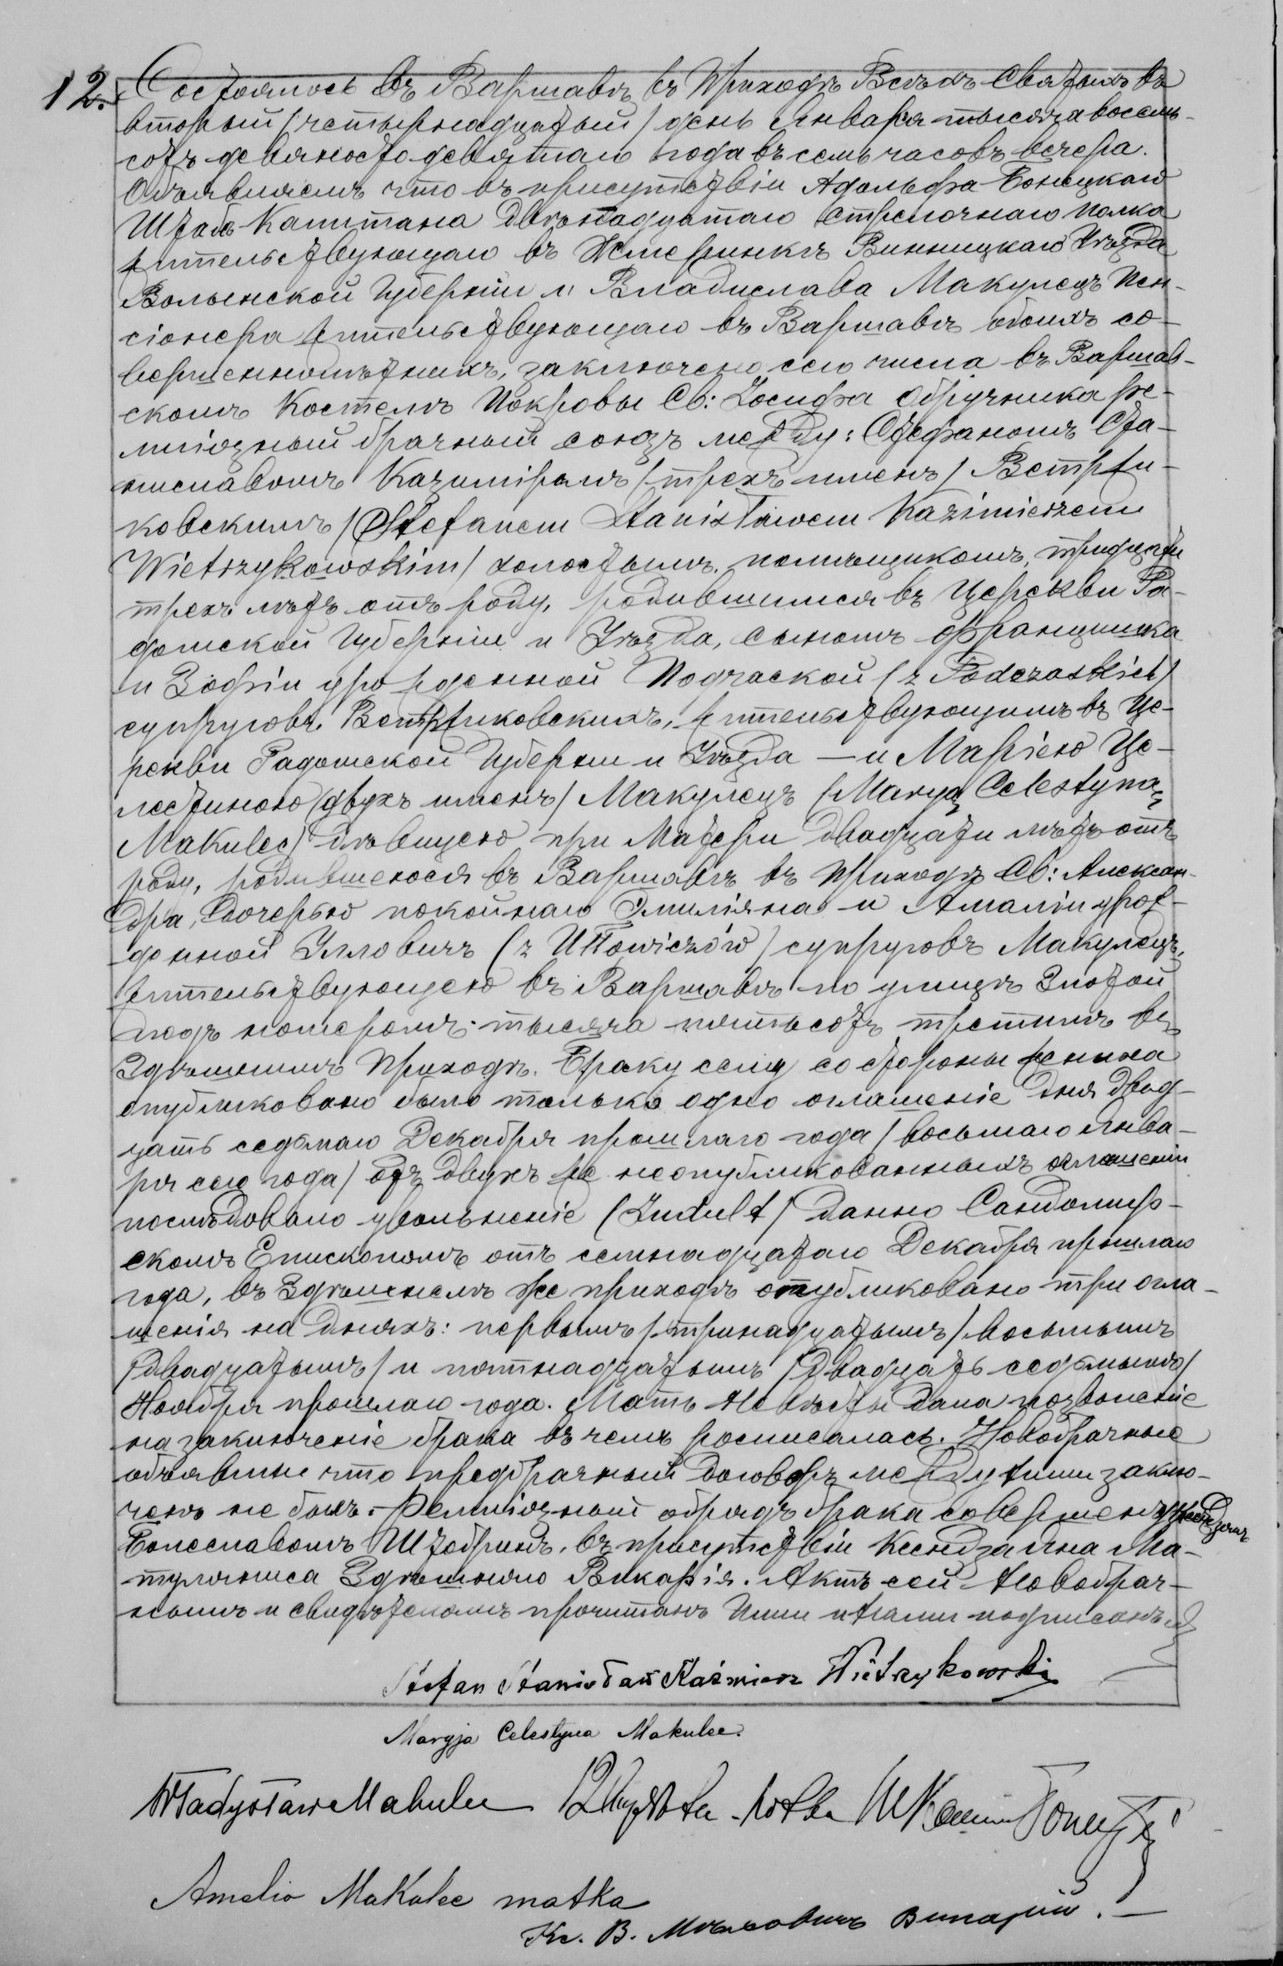 12. Состоялось въ Варшавѣ въ Приходѣ Всѣхъ Святыхъ въ
вторый /четырнадцатый/ день Января тысяча восемь-
сотъ девяносто девятаго года въ семь часовъ вечера.
Объявляемъ что въ присутствіи Адольфа Конецкаго
Штабъ-Капитана двѣнадцатаго Стрелочнаго полка
жительствующаго въ Жмеринкѣ Винницкаго Уѣзда
Волынской Губерніи и Владислава Макулецъ Пен-
сіонера жительствующаго въ Варшавѣ обоихъ со-
вершеннолѣтнихъ, заключено сего числа въ Варшав-
скомъ Костелѣ Покровы Св: Іосифа Обручника ре-
лигіозный брачный союзъ между: Стефаномъ Ста-
ниславомъ Казиміромъ /трехъ именъ/ Ветржи-
ковскимъ /Stefanem Stanisławem Kazimierzem
Wietrzykowskim/ холостымъ, помѣщикомъ, тридцати
трехъ лѣтъ отъ роду, родившимся въ Церекви Ра-
домской Губерніи и Уѣзда, сыномъ Францишка
и Зофіи урожденной Подчаской (z Podczaskich)
супруговъ Ветржиковскихъ, жительствующимъ въ Це-
рекви Радомской Губерніи и Уѣзда — и Маріею Це-
лестиною /двухъ именъ/ Макулецъ /Maryą Celestyną
Makulec/ дѣвицею при Матери двадцати лѣтъ отъ
роду, родившеюся въ Варшавѣ въ Приходѣ Св: Алексан-
дра, дочерью покойнаго Эмиліяна и Амаліи урож-
денной Илловичъ (z Iłłowiczów) супруговъ Макулецъ,
жительствующею въ Варшавѣ по улицѣ Злотой
подъ номеромъ тысяча пятьсотъ третимъ въ
Здѣшнемъ Приходѣ. Браку сему со стороны жениха
опубликовано было только одно оглашеніе дня двад-
цать седьмаго Декабря прошлаго года /восьмаго Янва-
ря сего года/ отъ двухъ же неопубликованныхъ оглашеній
послѣдовало увольненіе (Indult) данно Сандомир-
скомъ Епископомъ отъ семнадцатаго Декабря прошлаго
года, въ Здѣшнемъ же приходѣ опубликовано три огла-
шенія на дняхъ: первымъ /тринадцатымъ/ восьмымъ
/двадцатымъ/ и пятнадцатымъ /двадцать седьмымъ/
Ноября прошлаго года. Мать Невѣсты дала позволеніе
на заключеніе брака въ чемъ росписалась. Новобрачные
объявили что предбрачный договоръ между ними заклю-
ченъ не былъ. Религіозный обрядъ брака совершенъ Ксендзомъ
Болеславомъ Штобринъ, въ присутствіи Ксендза Яна Ма-
туляниса Здѣшняго Викарія. Актъ сей Новобрач-
нымъ и свидѣтелямъ прочитанъ Ими и Нами подписанъ
Stefan Stanisław Kaźmierz Wietrzykowski
Maryja Celestyna Makulec
Władysław Makulec
Amelia Makulec matka
Кс. В. Викарій.